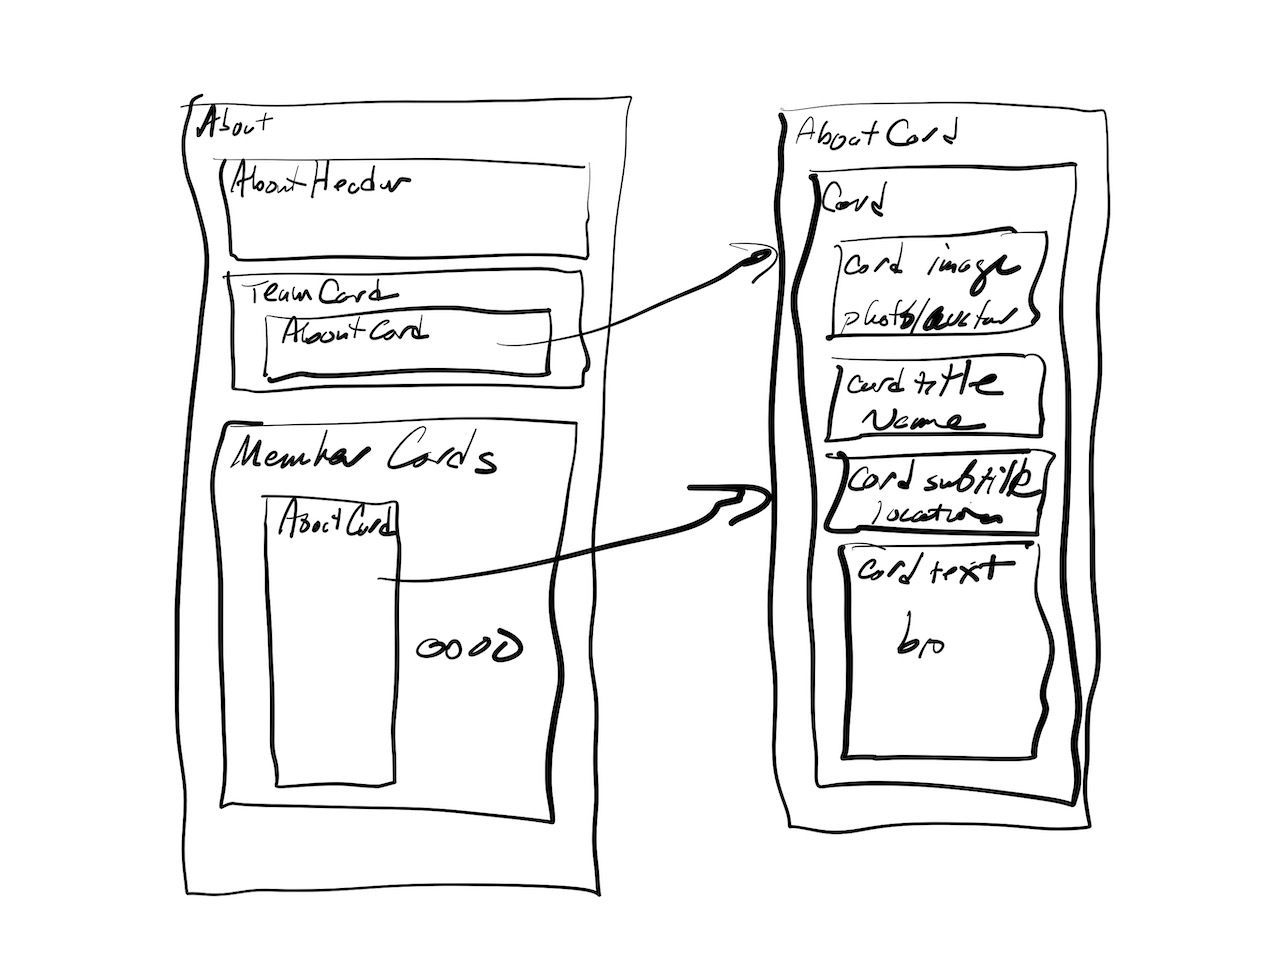 About
About Header
Team Card
About Card
Member Cards
About Card
oooo
About Card
Card
card image
photo/avatar
card title
Name
Card subtitle
location
Card text
bio